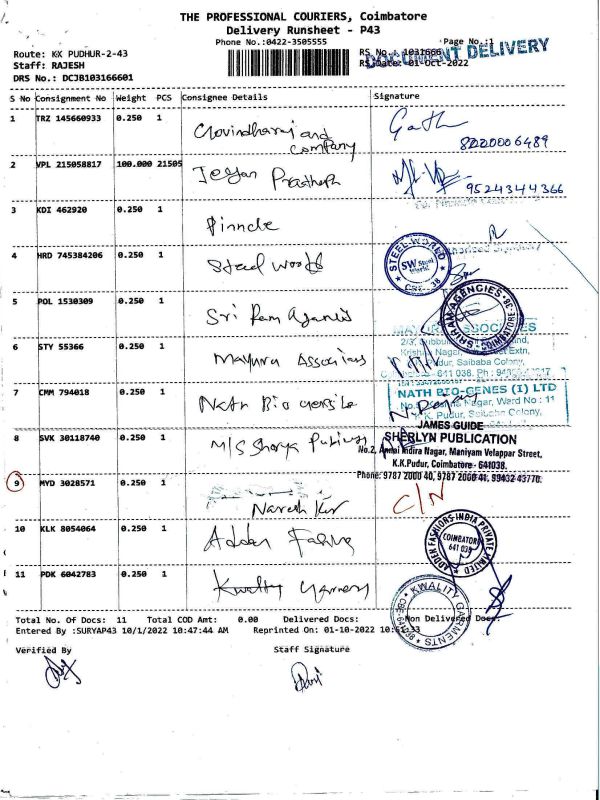 THE PROFESSIONAL COURIERS, Coimbatore
Delivery Runsheet - P43
Phone No.:0422-3505555
Page No.:1
Route: KK PUDHUR-2-43
RS No.: 1031666
DOCUMENT DELIVERY
Staff: RAJESH
RS Date: 01-Oct-2022
DRS No.: DCJB103166601
S No Consignment No Weight PCS Consignee Details Signature
1 TRZ 145660933 0.250 1 Govindharaj and company
8220006489
2 VPL 215058817 100.000 21505 Jegan Pradheph
9524344366
3 KDI 462920 0.250 1 Pinncle
4 HRD 745384206 0.250 1 Steel world
STEEL WORLD SW Steel World CBE - 38
5 POL 1530309 0.250 1 Sri Ram Agencies
SRIRAM AGENCIES COIMBATORE-38
6 STY 55366 0.250 1 Mayura Associates
MAYURA ASSOCIATES
Krishna Nagar,
Saibaba Colony,
641 038. Ph :
7 CMM 794018 0.250 1 Nath Bio
NATH BIO-GENES (I) LTD
Nagar, Ward No : 11
K.K. Pudur, Saibaba Colony,
8 SVK 30118740 0.250 1 M/S Shorya
JAMES GUIDE
SHERLYN PUBLICATION
No.2, Annai Indira Nagar, Maniyam Velappar Street,
K.K.Pudur, Coimbatore - 641038.
Phone: 9787 2000 40, 9787 2000 41, 99432 43770.
9 MYD 3028571 0.250 1 Naresh Kur
C/N
10 KLK 8054064 0.250 1 Adden Fashing
ADDEN FASHIONS INDIA PRIVATE LIMITED COIMBATORE 641 038
11 PDK 6042783 0.250 1 Kwality Garments
KWALITY GARMENTS
Total No. Of Docs: 11 Total COD Amt: 0.00 Delivered Docs: Non Delivered Docs:
Entered By :SURYAP43 10/1/2022 10:47:44 AM Reprinted On: 01-10-2022 10:51:33
Verified By Staff Signature